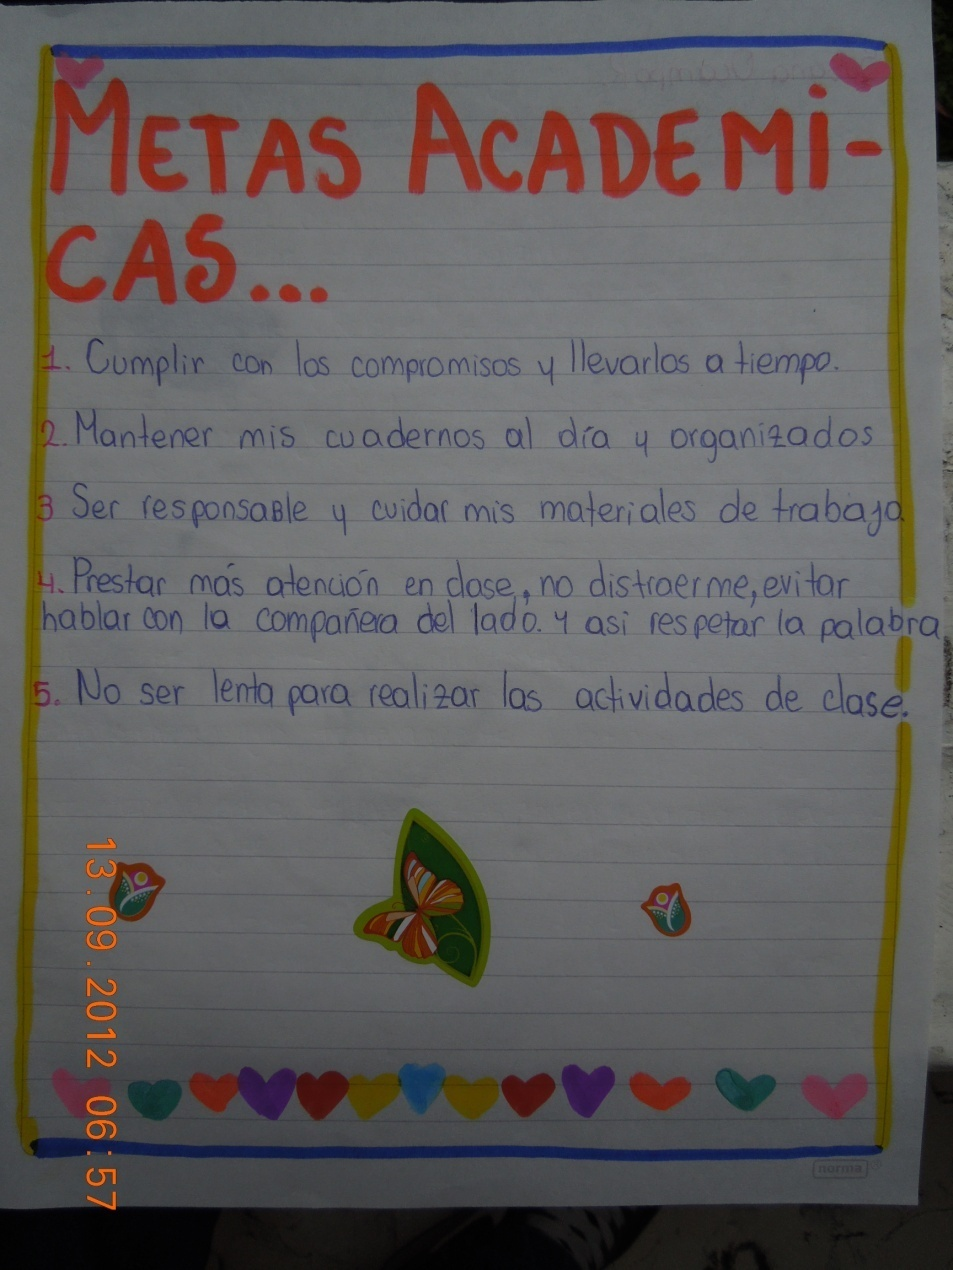 METAS ACADEMI-
CAS...
1. Cumplir con los compromisos y llevarlos a tiempo.
2. Mantener mis cuadernos al día y organizados
3 Ser responsable y cuidar mis materiales de trabajo
4. Prestar más atención en clase, no distraerme, evitar
hablar con la compañera del lado. Y asi respetar la palabra
5. No ser lenta para realizar las actividades de clase.
norma
13.09.2012 06:57